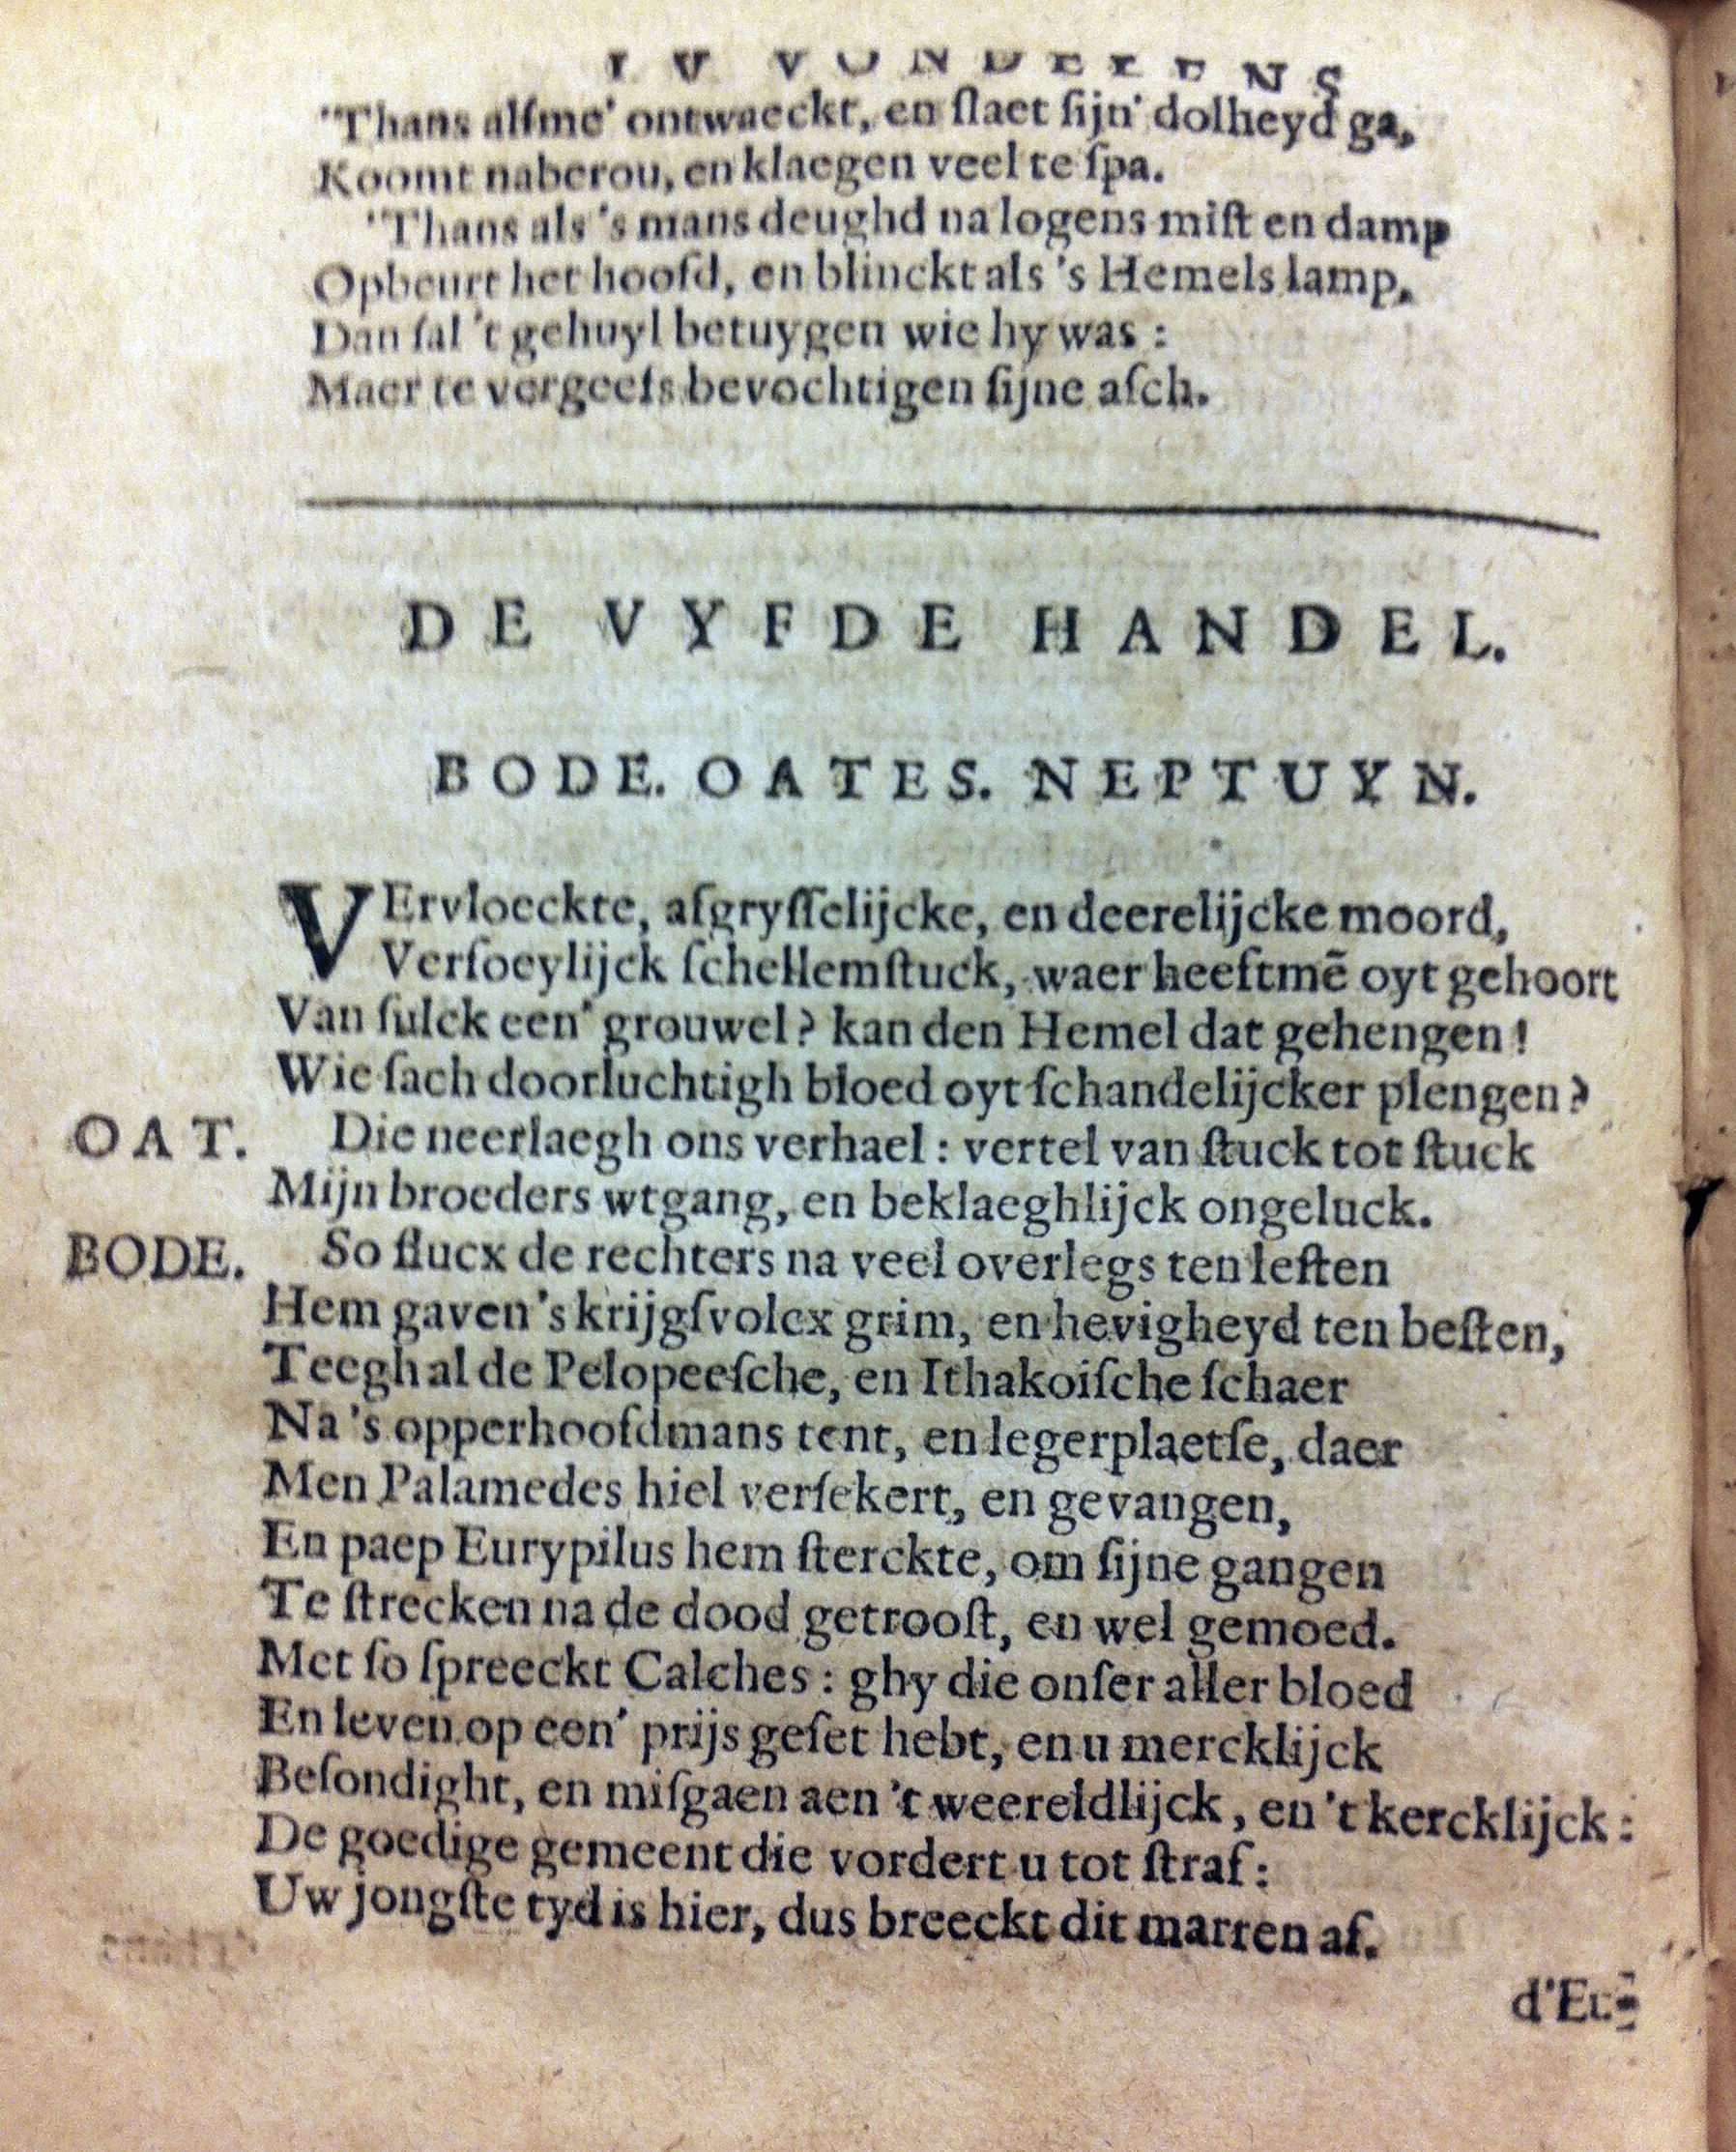 VONDELENS
'Thans alſme' ontwaeckt, en ſlaet ſijn' dolheyd ga,
Koomt naberou, en klaegen veel te ſpa.
'Thans als 's mans deughd na logens miſt en damp
Opbeurt het hoofd, en blinckt als 's Hemels lamp,
Dan ſal 't gehuyl betuygen wie hy was :
Maer te vergeefs bevochtigen ſijne aſch.
DE VYFDE HANDEL.
BODE. OATES. NEPTUYN.
VErvloeckte, afgryſſelijcke, en deerelijcke moord,
Verfoeylijck ſchellemſtuck, waer heeftmẽ oyt gehoort
Van ſulck een' grouwel? kan den Hemel dat gehengen!
Wie ſach doorluchtigh bloed oyt ſchandelijcker plengen?
OAT. Die neerlaegh ons verhael : vertel van ſtuck tot ſtuck
Mijn broeders wtgang, en beklaeghlijck ongeluck.
BODE. So flucx de rechters na veel overlegs ten leſten
Hem gaven 's krijgſvolcx grim, en hevigheyd ten beſten,
Teegh al de Pelopeeſche, en Ithakoiſche ſchaer
Na 's opperhoofdmans tent, en legerplaetſe, daer
Men Palamedes hiel verſekert, en gevangen,
En paep Eurypilus hem ſterckte, om ſijne gangen
Te ſtrecken na de dood getrooſt, en wel gemoed.
Met ſo ſpreeckt Calches : ghy die onſer aller bloed
En leven op een' prijs geſet hebt, en u mercklijck
Beſondight, en miſgaen aen 't weereldlijck, en 't kercklijck :
De goedige gemeent die vordert u tot ſtraf :
Uw jongſte tyd is hier, dus breeckt dit marren af.
d'Eu-